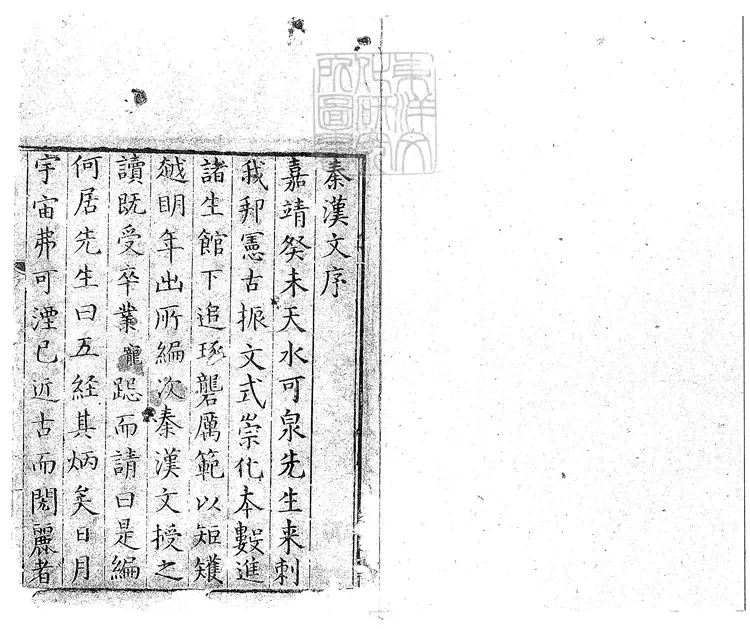 秦漢文序
嘉靖癸未天水可泉先生来刺
我郡憲古振文式崇化本數進
諸生館下追琢礱厲範以矩矱
越明年出所編次秦漢文授之
讀既受卒業寵跽而請曰是編
何居先生曰五経其炳矣日月
宇宙弗可湮已近古而閎麗者
東洋文
化研究
所圖書